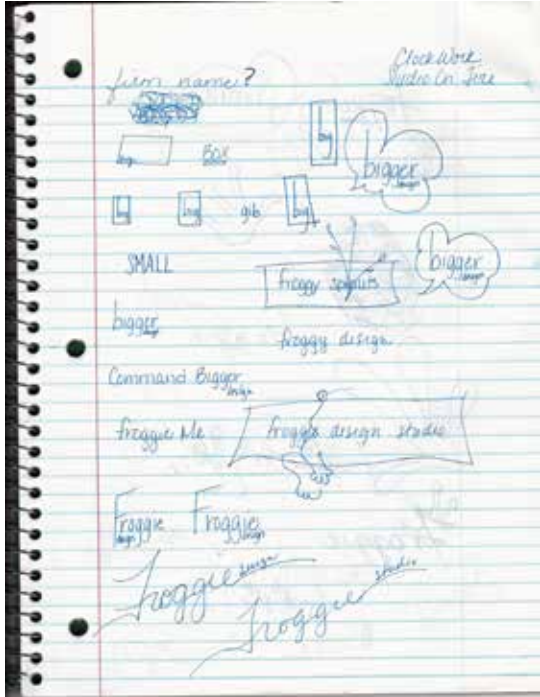 ClockWork
firm name?
big
big
BOX
bigger
design
big
big
gib
big
SMALL
froggy sprouts
bigger
design
bigger
design
froggy design
Command Bigger
design
froggie Me
froggie design studio
Froggie
design
Froggie
design
Froggie design
Froggie studio